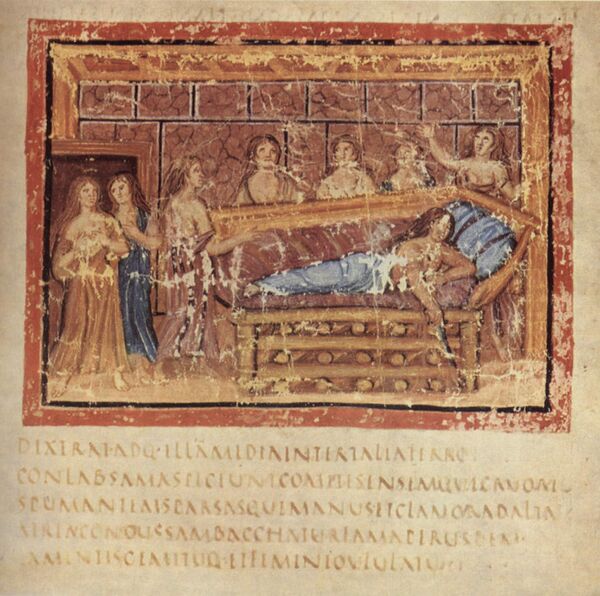 DIXERATADQ·ILLĀMEDIAINTERTALIAFERRO
CONLABSAMASPICIUNTCOMITESENSEMQUECRUORE
SPUMANTEMSPARSASQUEMANUSITCLAMORADALTA
ATRIACONCUSSAMBACCHATURFAMAPERURBEM
LAMENTISGEMITUQ·ETFEMINEOULULATU